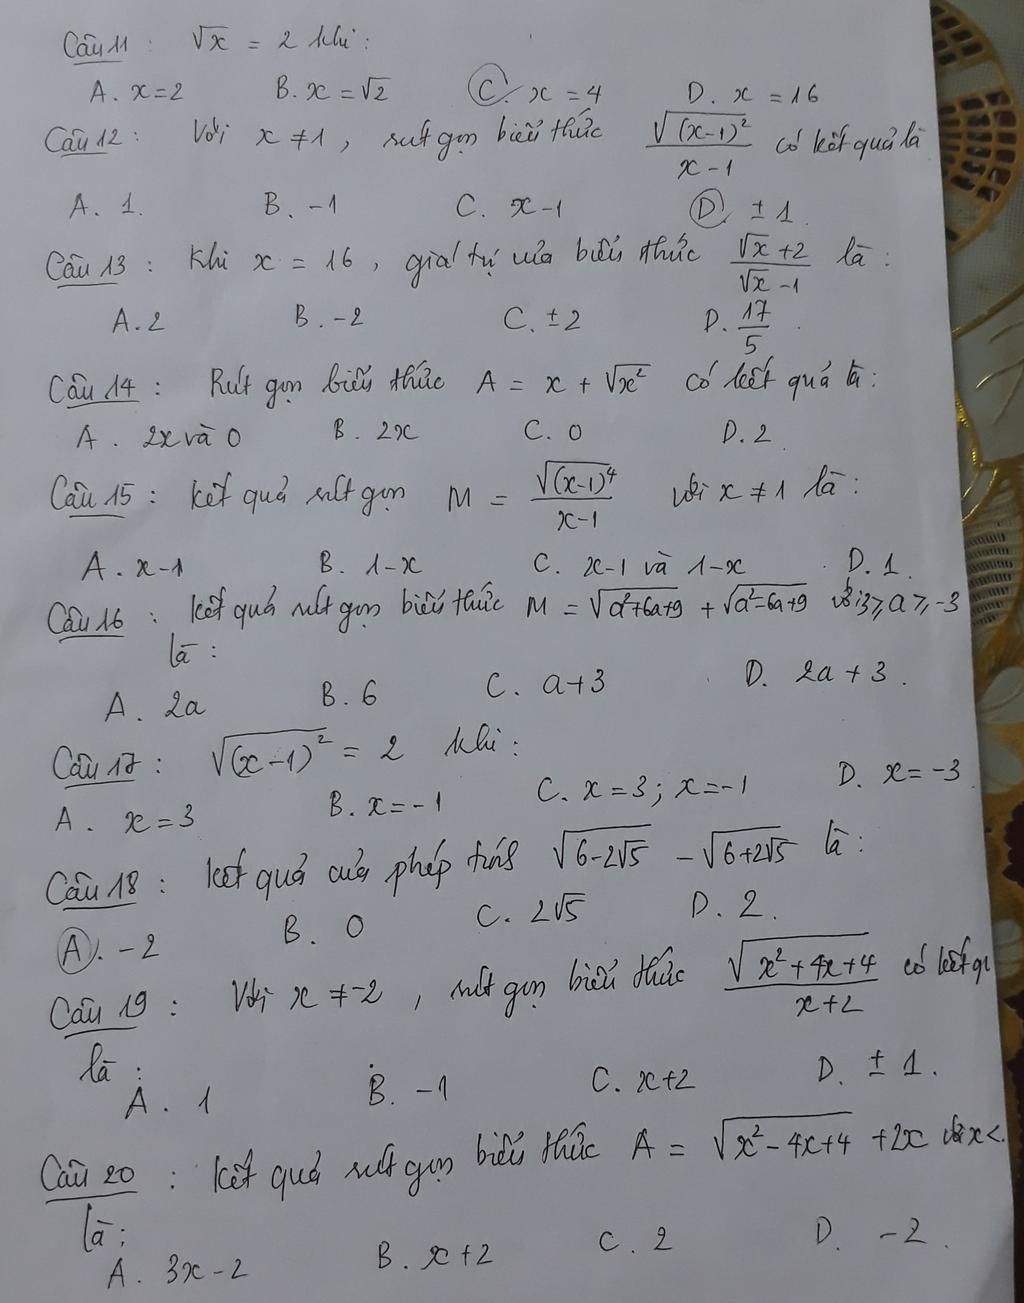 Câu 11 : √x = 2 khi :
A. x = 2 B. x = √2 C. x = 4 D. x = 16
Câu 12 : Với x ≠ 1 , rút gọn biểu thức √(x-1)² / x - 1 có kết quả là
A. 1. B. -1 C. x - 1 D. ± 1.
Câu 13 : Khi x = 16 , giá trị của biểu thức √x + 2 / √x - 1 là :
A. 2 B. -2 C. ± 2 D. 17/5 .
Câu 14 : Rút gọn biểu thức A = x + √x² có kết quả là :
A . 2x và 0 B. 2x C. 0 D. 2
Câu 15 : Kết quả rút gọn M = √(x-1)⁴ / x - 1 với x ≠ 1 là :
A. x - 1 B. 1 - x C. x - 1 và 1 - x D. 1.
Câu 16 : Kết quả rút gọn biểu thức M = √a²+6a+9 + √a²-6a+9 với 3 ⩾ a ⩾ -3
là :
A. 2a B. 6 C. a + 3 D. 2a + 3.
Câu 17 : √(x - 1)² = 2 khi :
A. x = 3 B. x = -1 C. x = 3 ; x = -1 D. x = -3
Câu 18 : Kết quả của phép tính √6 - 2√5 - √6 + 2√5 là :
A. -2 B. 0 C. 2√5 D. 2.
Câu 19 : Với x ≠ -2 , rút gọn biểu thức √x² + 4x + 4 / x + 2 có kết qu
là :
A. 1 B. -1 C. x + 2 D. ± 1.
Câu 20 : Kết quả rút gọn biểu thức A = √x² - 4x + 4 + 2x với x <
là :
A. 3x - 2 B. x + 2 C. 2 D. -2.